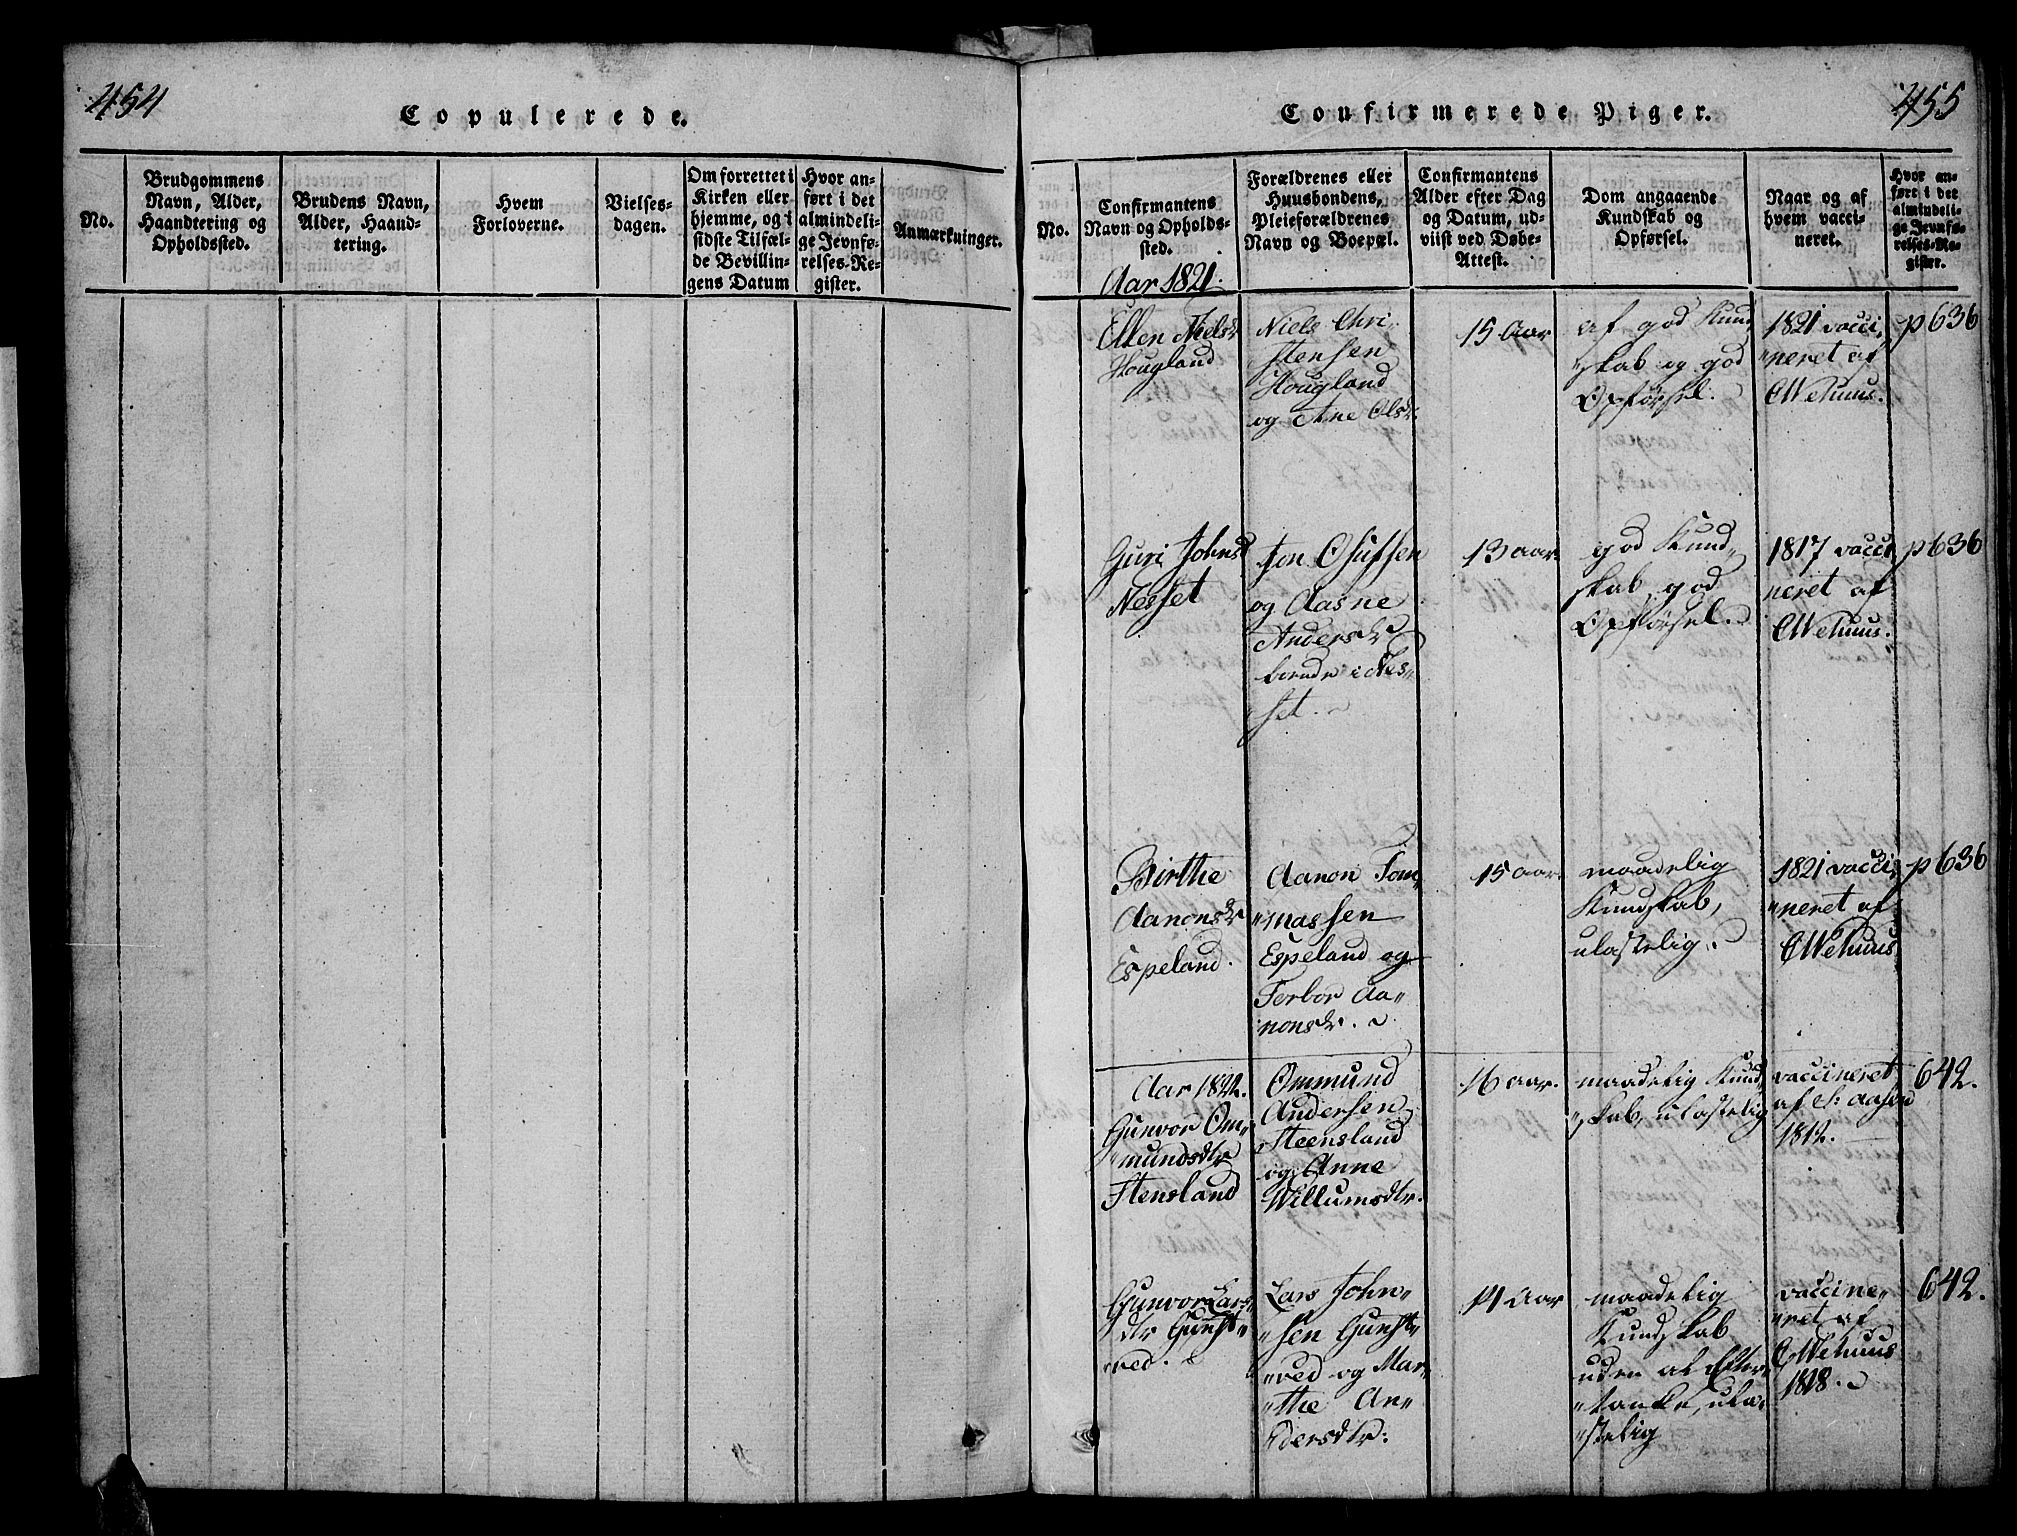 454
Copulerede.
No.
Brudgommens
Navn, Alder,
Haandtering og
Opholdssted.
Brudens Navn,
Alder, Haand-
tering.
Hvem
Forloverne.
Vielses-
dagen.
Om forrettet i
Kirken eller
hjemme, og i
sidste Tilfæl-
de Bevillin-
gens Datum
Hvor an-
ført i det
almindeli-
ge Jevnfø-
relses-Re-
gister.
Anmærkninger.
455
Confirmerede Piger.
No.
Confirmantens
Navn og Opholds-
sted.
Forældrenes eller
Huusbondens,
Pleieforældrenes
Navn og Boepæl.
Confirmantens
Alder efter Dag
og Datum, ud-
viist ved Døbe-
Attest.
Dom angaaende
Kundskab og
Opførsel.
Naar og af
hvem vacci-
neret.
Hvor an-
ført i det
almindeli-
ge Jevnfø-
relses-Re-
gister.
Aar 1821.
Ellen Nielsdr
Hougland
Niels Chri-
stensen
Hougland
og Ane Olsdr.
15 Aar
af god Kund
"skab og god
Opførsel.
1821 vacci-
"neret af
p 636
Guri Johnsd
Nesset
Jon Osufsen
og Aasne
Andersdr
boende i Nes-
"set.
13 aar.
god Kund-
skab, god
Opførsel.
1817 vacci
neret af
p 636
Birthe
Aanonsdr
Espeland.
Aanon Tom-
"massen
Espeland og
Torbor Aa-
nonsdr.
15 aar.
maadelig
Kundskab,
ulastelig.
1821 vacci-
"neret af
p 636
Aar 1822.
Gunvor Om-
"mundsdtr
Stensland
Ommund
Andersen
Steensland
og Anne
Willumsdtr.
16 aar.
maadelig Kund
"skab, ulastelig
vaccineret
af S: Aasen
1812.
642.
Gunvor Lars-
dtr Gunst-
ved.
Lars John-
"sen Gunst-
"ved og Mar-
"the An-
dersdtr:
14 Aar
maadelig
Kundskab
uden al Efter-
"tanke, ula-
"stelig
vaccine-
"ret af
1818.
642.